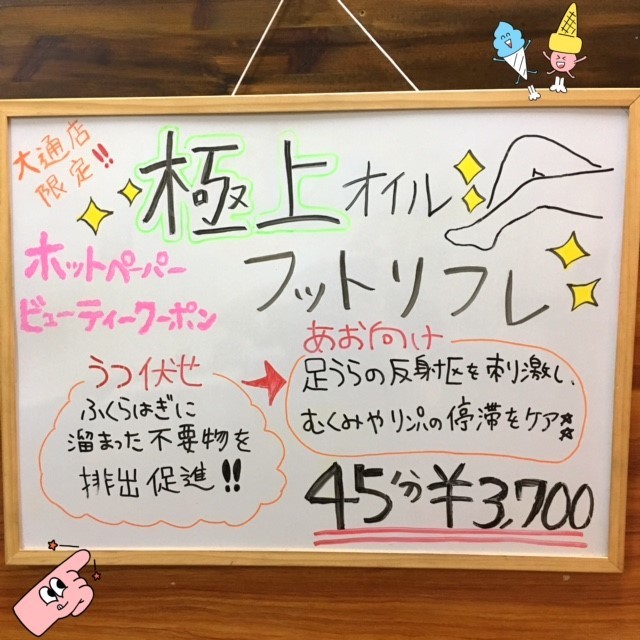 大通店
限定!!
極上オイル
フットリフレ
ホットペーパー
ビューティークーポン
うつ伏せ
ふくらはぎに
溜まった不要物を
排出促進!!
あお向け
足うらの反射区を刺激し、
むくみやリンパの停滞をケア☆☆
45分¥3,700